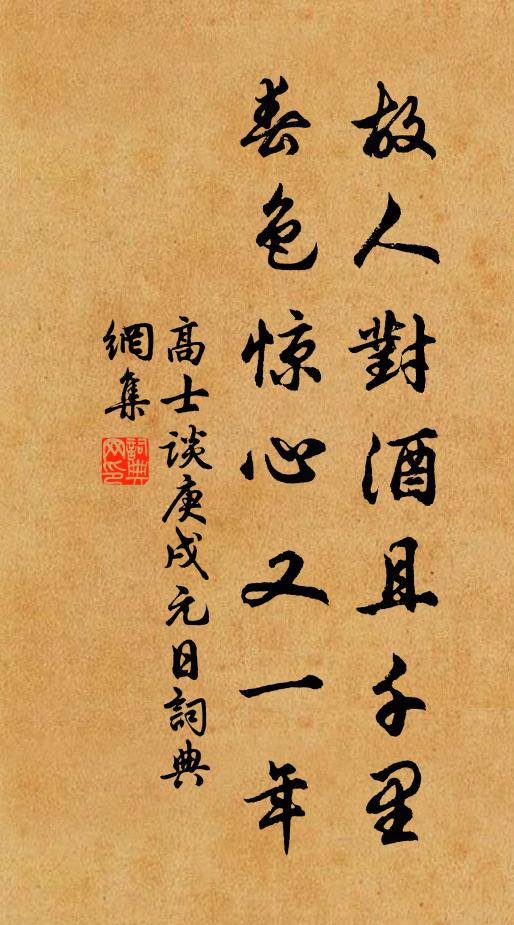 故人對酒且千里
春色惊心又一年
高士谈庚戌元日詞典
網集
詞典
网印